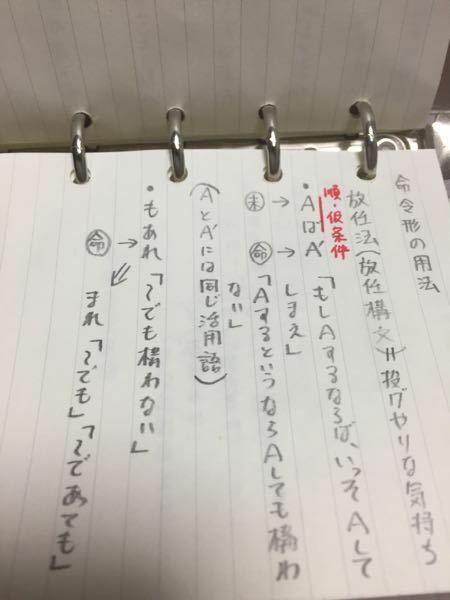 命令形の用法
放任法(放任構文)=投げやりな気持ち
順・仮条件
・AばA'「もしAするならば、いっそAして
しまえ」
未 命
「AするというならAしても構わ
ない」
(AとA'には同じ活用語)
・もあれ「〜でも構わない」
命 まれ「〜でも」「〜であても」